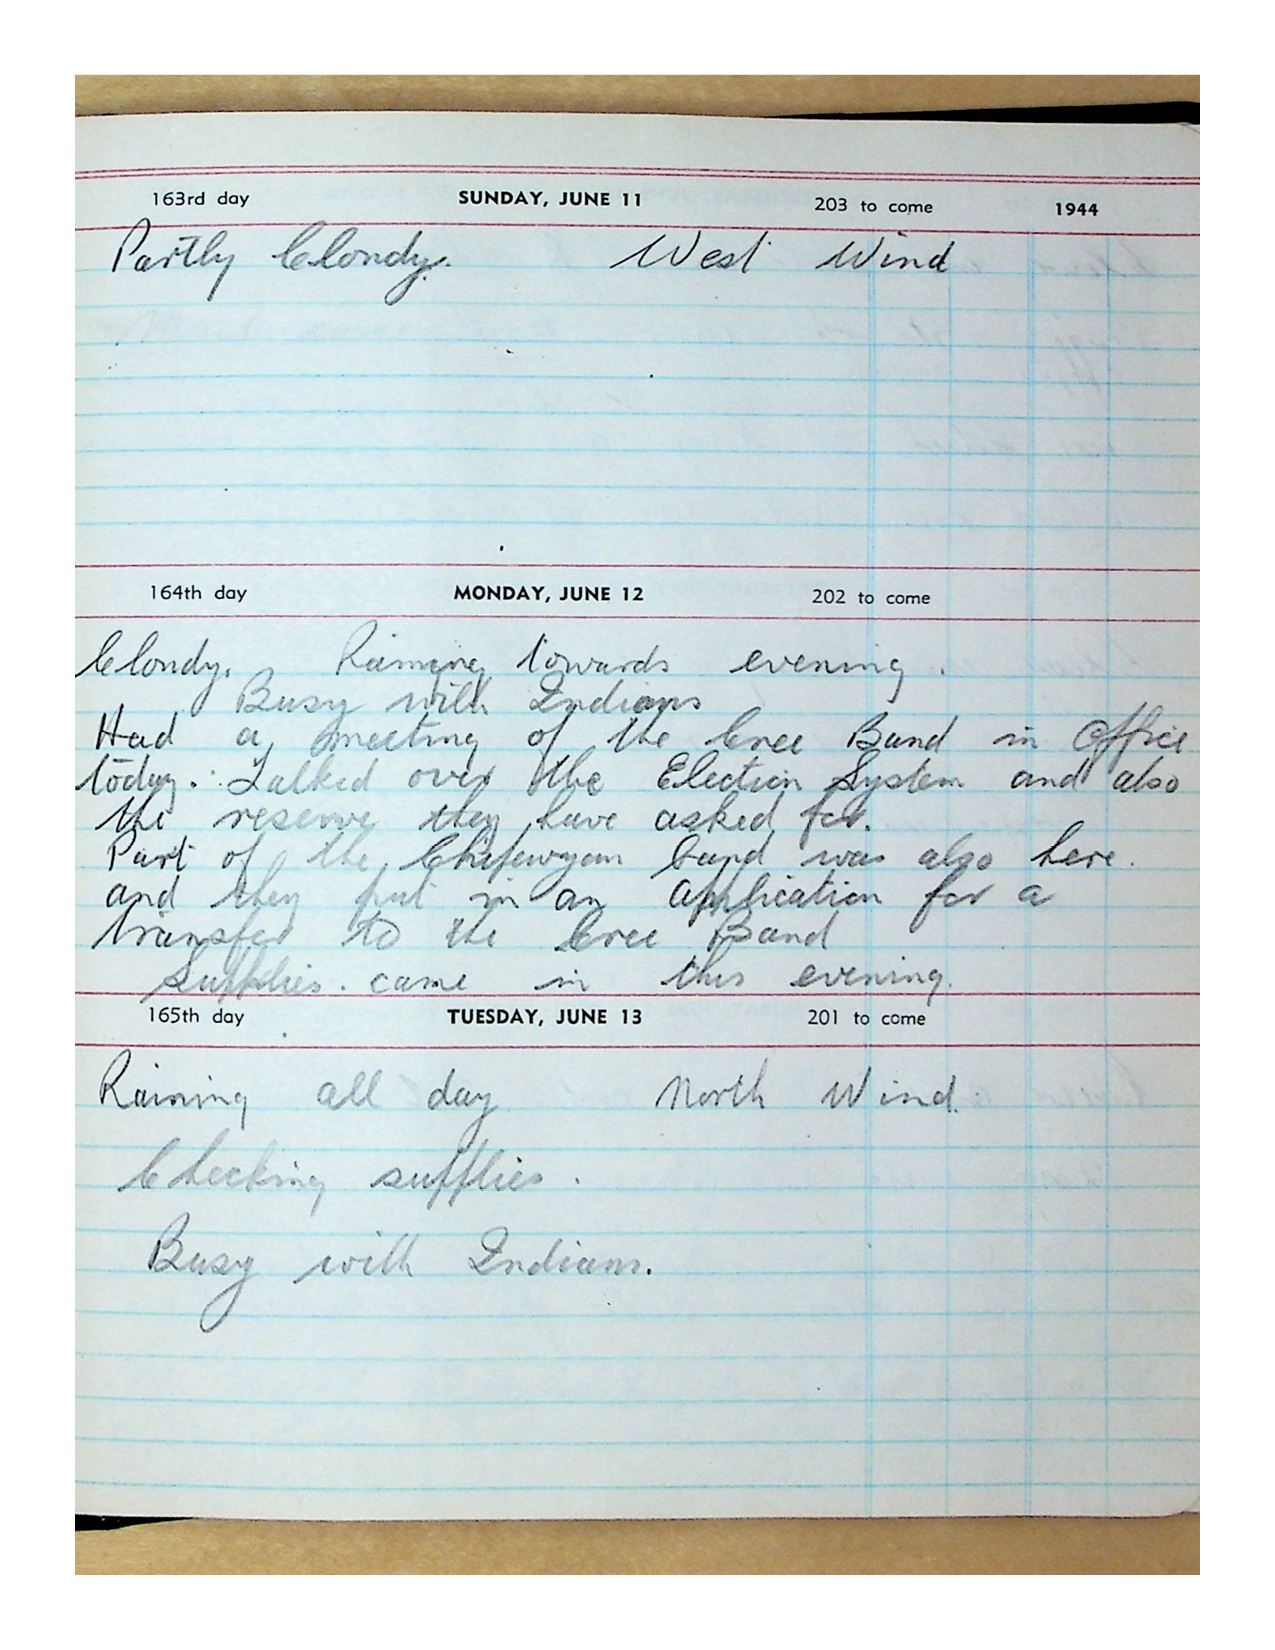 163rd day SUNDAY, JUNE 11 203 to come 1944
Partly Cloudy. West Wind
164th day MONDAY, JUNE 12 202 to come
Cloudy. Raining towards evening.
Busy with Indians
Had a meeting of the Cree Band in Office
today. Talked over the Election System and also
the reserve they have asked for.
Part of the Chipewyan band was also here.
and they put in an application for a
transfer to the Cree Band
Supplies. came in this evening.
165th day TUESDAY, JUNE 13 201 to come
Raining all day North Wind.
Checking supplies.
Busy with Indians.